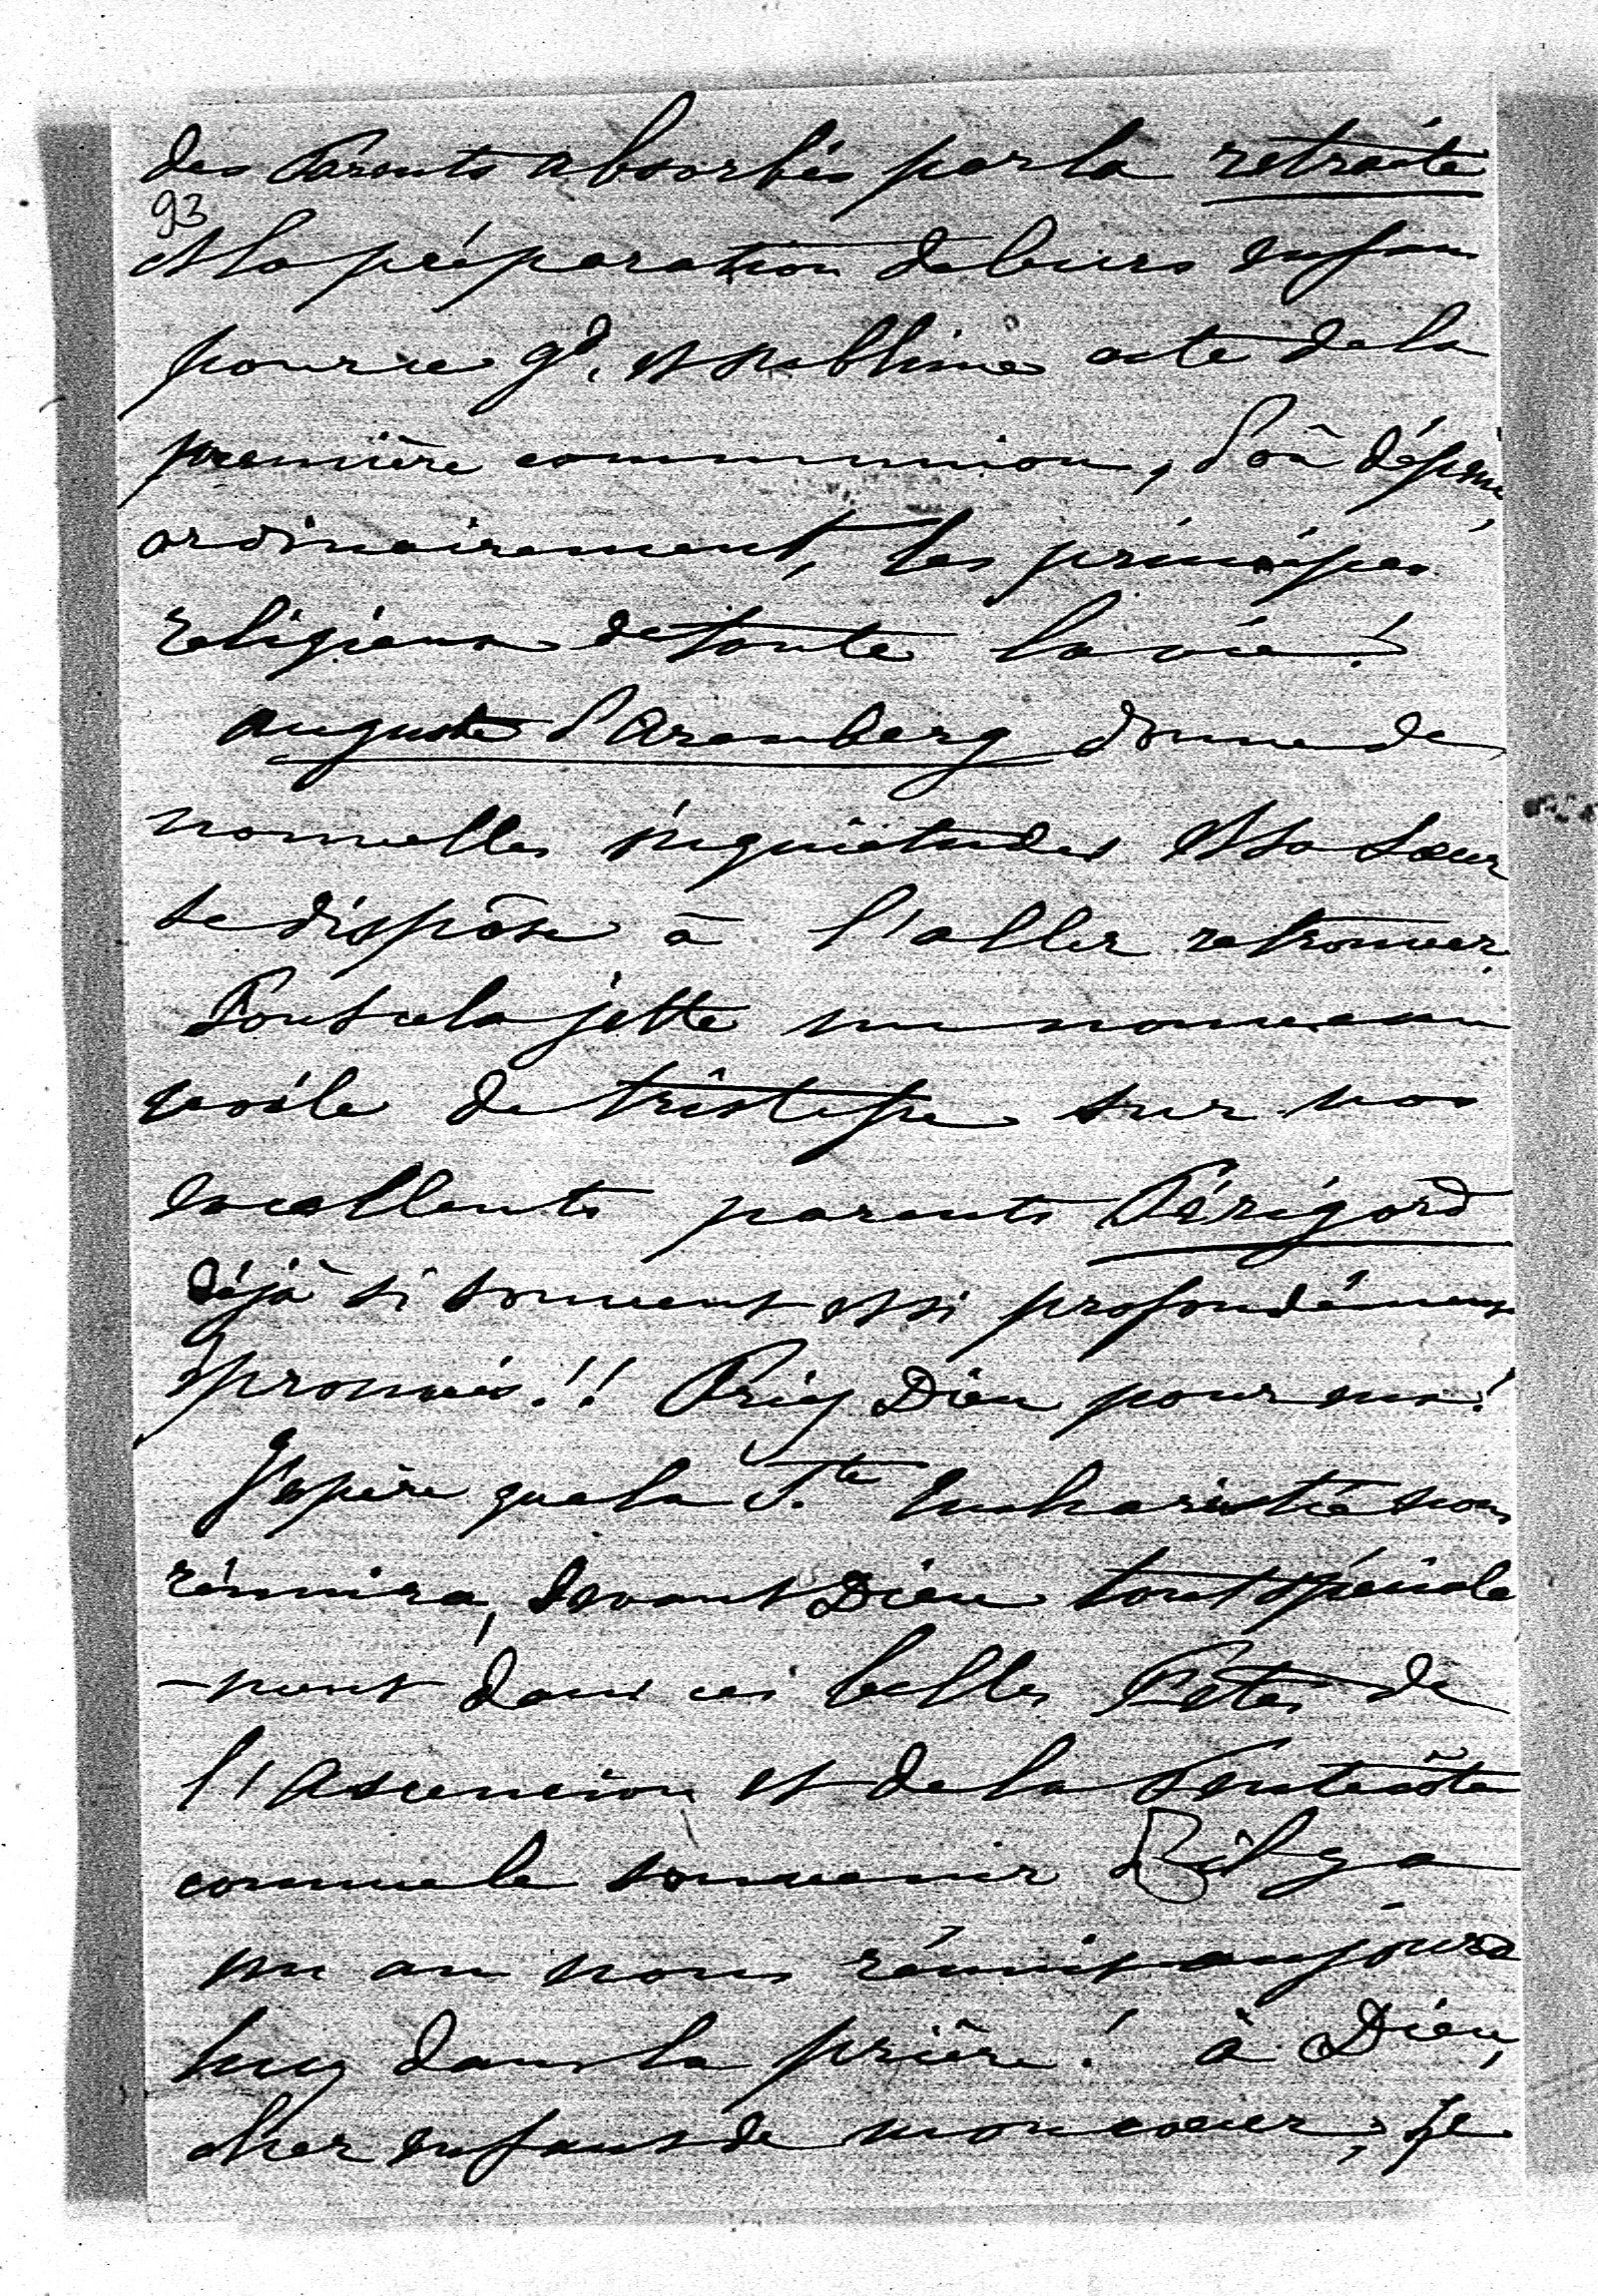 des Parents absorbés par la retraite
93
et la préparation de leurs enfans
pour ce gd. et sublime acte de la
première communion, d'où dépend,
ordinairement, les principes
religieux de toute la vie !
Auguste d'Arenberg donne de
nouvelles inquiétudes et sa Soeur
se dispose à l'aller retrouver.
Tout cela jette un nouveau
voile de tristesse sur nos
excellents parents Périgord
déjà si souvent et si profondément
éprouvés !! Priez Dieu pour eux !
J'espère que la Ste Eucharistie nous
réunira, devant Dieu tout spéciale
-ment dans ces belles Fêtes de
l'Ascencion et de la Pentecôte
comme le souvenir d'il y a
un an nous réunit aujourd
huy dans la prière ! à Dieu,
cher enfant de mon coeur, je